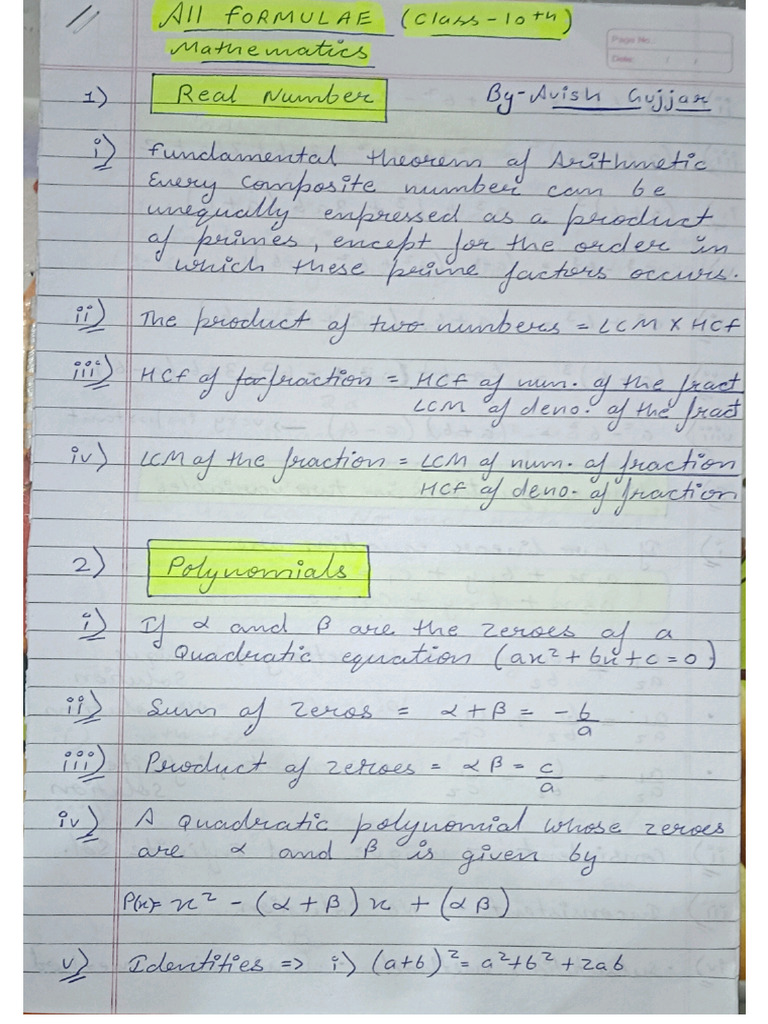 All FORMULAE (Class-10th)
Mathematics
Page No.
Date: / /
1) Real Number By-Avish Gujjar
i) Fundamental theorem of Arithmetic
Every composite number can be
unequally expressed as a product
of primes, except for the order in
which these prime factors occurs.
ii) The product of two numbers = LCM X HCF
iii) HCF of fraction = HCF of num. of the fract
LCM of deno. of the fract
iv) LCM of the fraction = LCM of num. of fraction
HCF of deno. of fraction
2) Polynomials
i) If α and β are the zeroes of a
Quadratic equation (ax² + bx + c = 0)
ii) Sum of zeros = α + β = -b/a
iii) Product of zeroes = αβ = c/a
iv) A quadratic polynomial whose zeroes
are α and β is given by
P(x)= x² - (α + β) x + (αβ)
v) Identities => i) (a+b)² = a²+b²+2ab